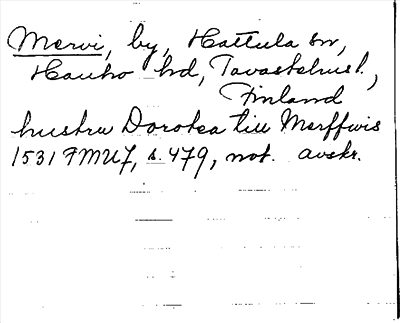 Mervi, by, Hattula sn,
Hauho hd, Tavastehus l.,
Finland
hustru Dorotea till Merffwis
1531 FMU7, s. 479, not. avskr.